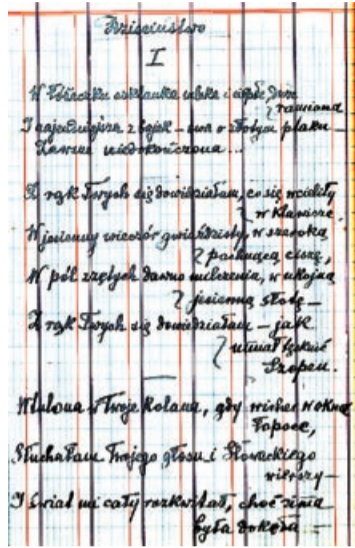 Dzieciństwo
I
W łóżeczku szklanka mleka i ciepłe dwa
ramiona
I najcudniejsza z bajek – ta o złotym ptaku –
Zawsze niedokończona...
Z rąk Twych się dowiedziałam, co się
w klawisze,
W jesienny wieczór gwiaździsty, w szeroką
pachnącą ciszę,
W pól zżętych dawno milczenia, w ukojną
jesienną słotę –
Z rąk Twych się dowiedziałam – jak
umiał tęsknić
Szopen.
Wtulona w Twoje kolana, gdy wicher w okna
łopoce,
Słuchałam Twojego głosu i Słowackiego
wierszy –
I świat mi cały rozkwitał, choć zima
była dokoła –